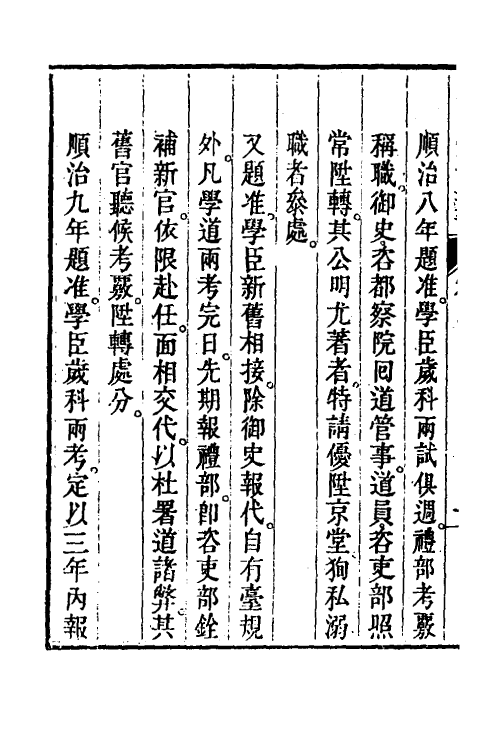 順治八年題准。學臣歲科兩試俱週。禮部考覈
稱職。御史咨都察院囘道管事。道員咨吏部照
常陞轉。其公明尤著者。特請優陞京堂。狥私溺
職者叅處。
又題准。學臣新舊相接。除御史報代。自有臺規
外。凡學道兩考完日。先期報禮部。卽咨吏部銓
補新官。依限赴任。面相交代。以杜署道諸弊。其
舊官聽候考覈。陞轉處分。
順治九年題准。學臣歲科兩考。定以三年內報